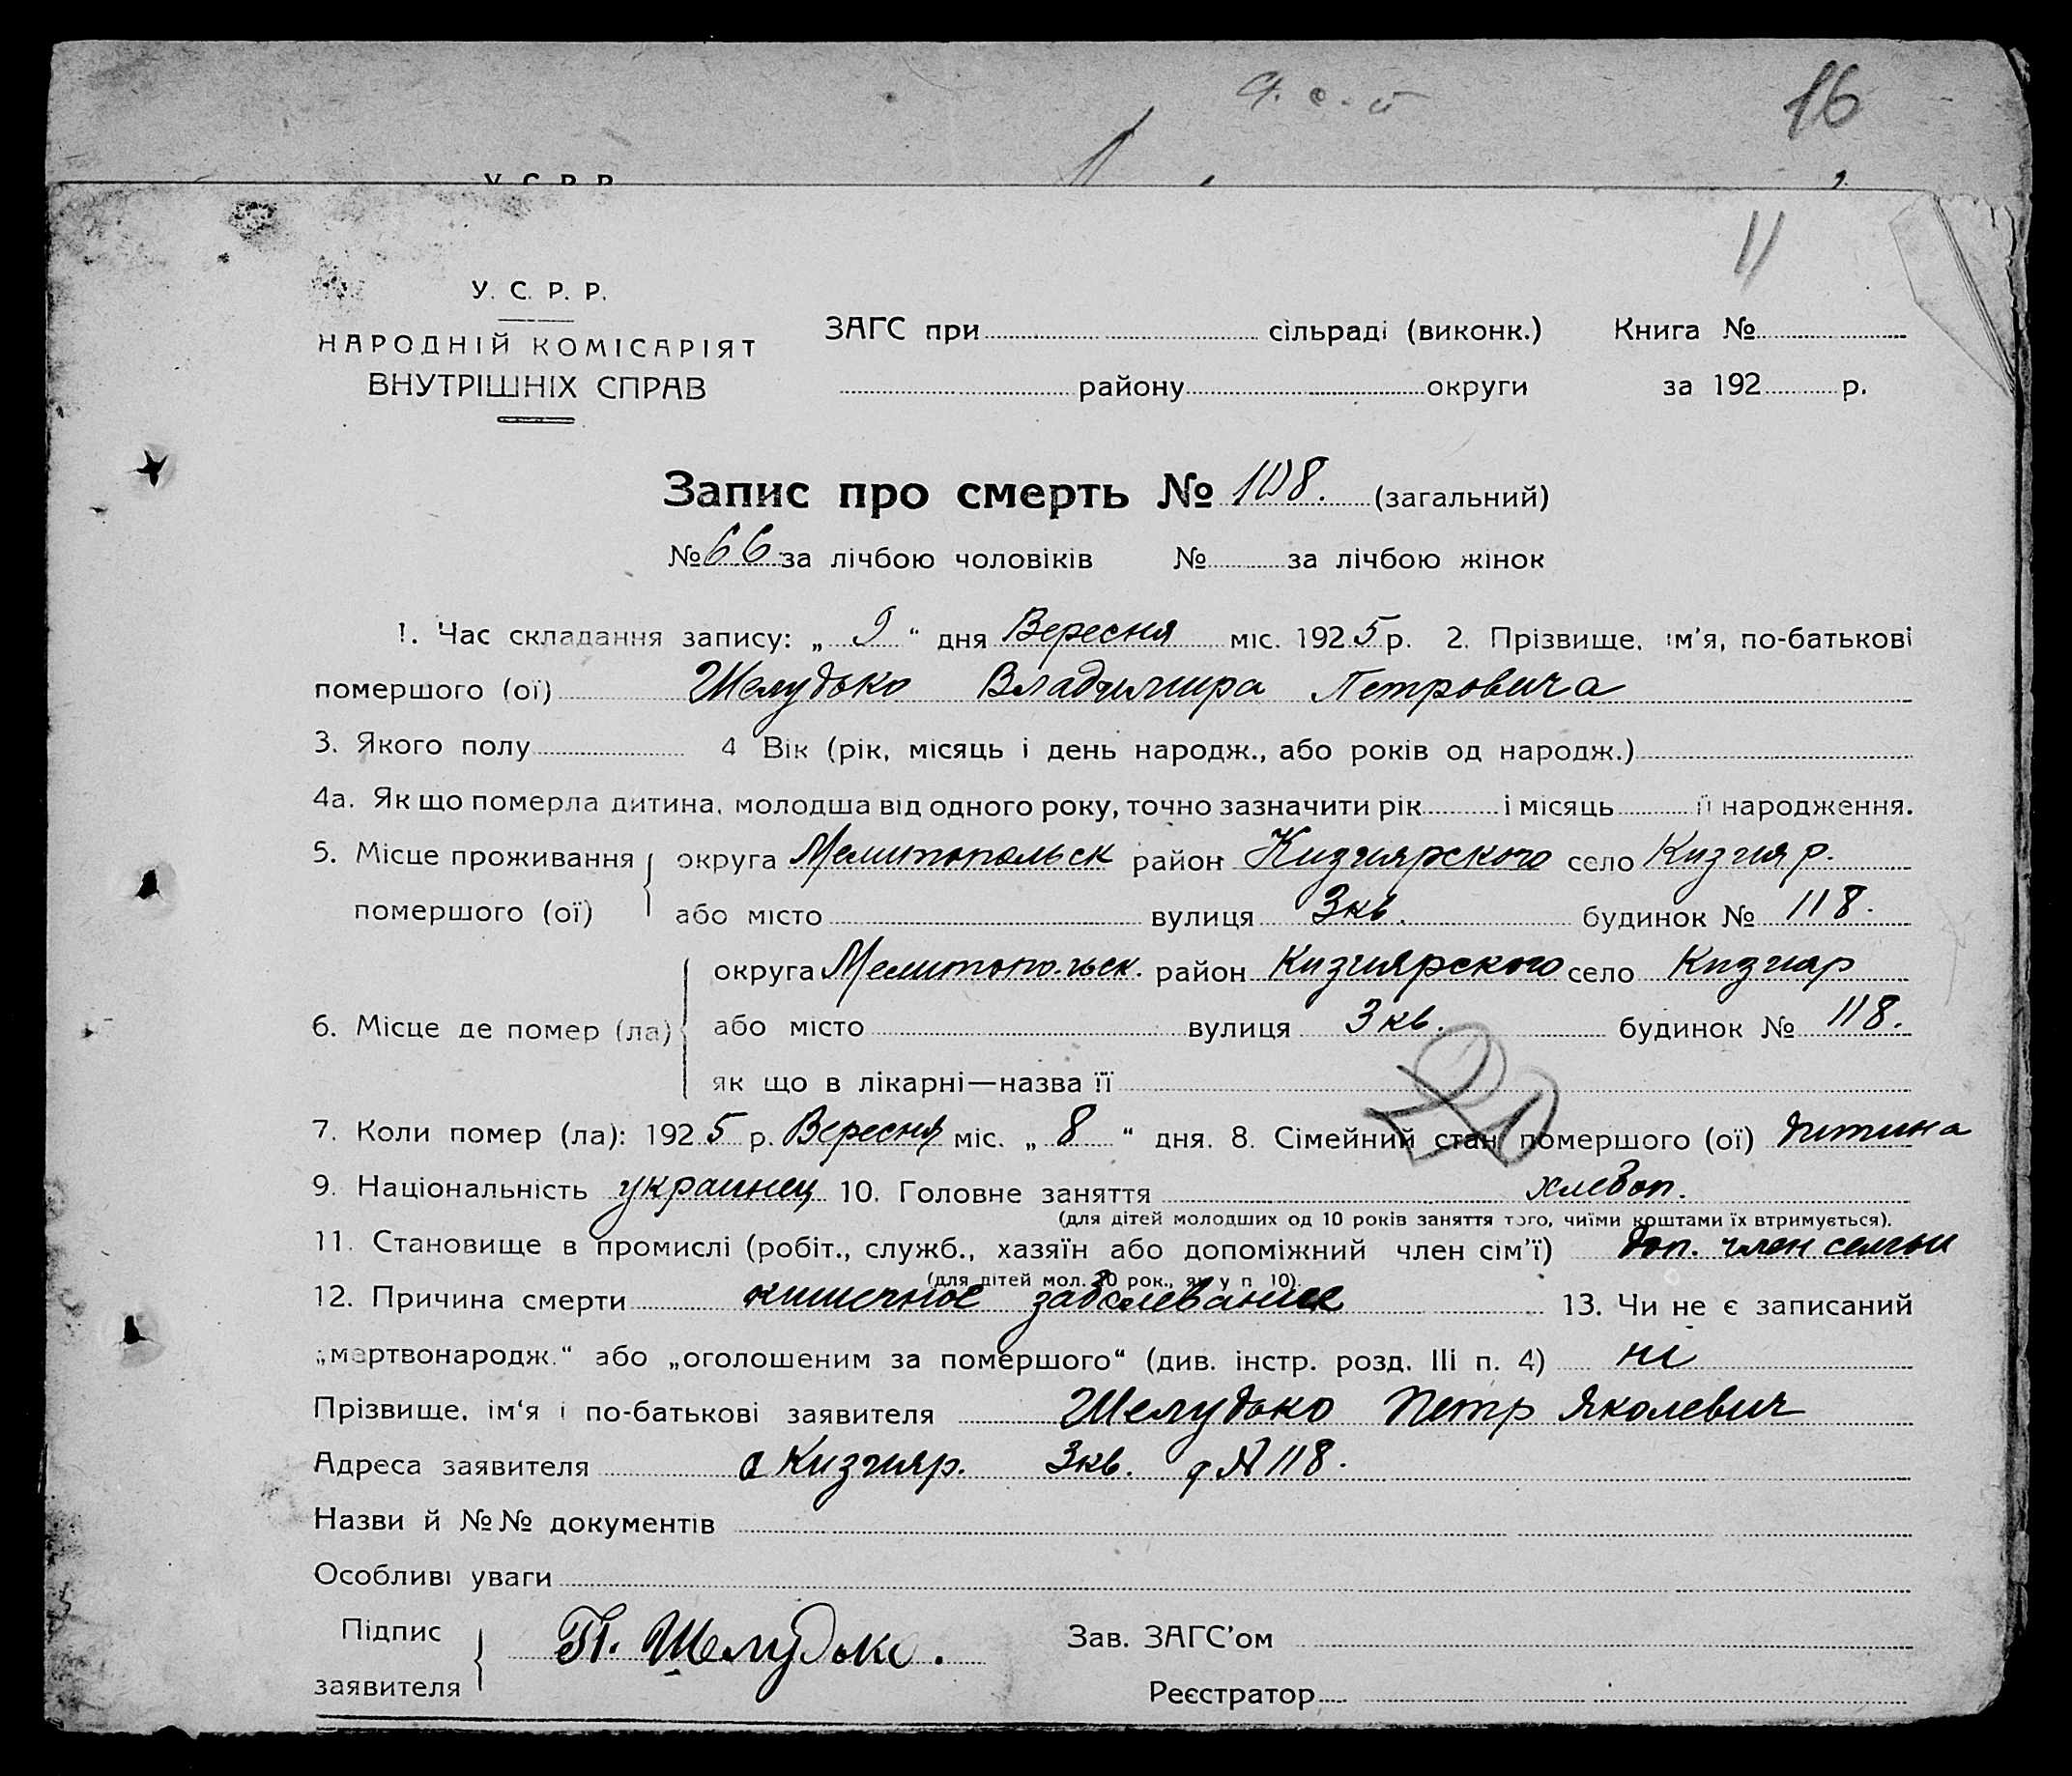 16
У. С. Р. Р.
11
У. С. Р. Р.
НАРОДНІЙ КОМІСАРІЯТ
ВНУТРІШНІХ СПРАВ
ЗАГС при сільраді (виконк.) Книга №
району округи за 192 р.
Запис про смерть № 108. (загальний)
№ 66 за лічбою чоловіків № за лічбою жінок
1. Час складання запису: „ 9 “ дня Вересня міс. 1925 р. 2. Прізвище, ім'я, по-батькові
помершого (ої) Шелудько Владимира Петровича
3. Якого полу 4 Вік (рік, місяць і день народж., або років од народж.)
4а. Як що померла дитина, молодша від одного року, точно зазначити рік і місяць її народження.
5. Місце проживання округа Мелитопольск район Кизиярского село Кизияр.
помершого (ої) або місто вулиця 3кв. будинок № 118.
округа Мелитопольск. район Кизиярского село Кизияр
6. Місце де помер (ла) або місто вулиця 3 кв. будинок № 118.
як що в лікарні—назва її
20
7. Коли помер (ла): 1925 р. Вересня міс. „ 8 “ дня. 8. Сімейний стан помершого (ої) дитина
9. Національність украинец 10. Головне заняття хлебоп.
(для дітей молодших од 10 років заняття того, чиїми коштами їх втримується).
11. Становище в промислі (робіт., служб., хазяїн або допоміжний член сім'ї) доп. член семьи
(для дітей мол. 10 рок., як у п 10).
12. Причина смерти кишечное заболевание 13. Чи не є записаний
„мертвонародж.“ або „оголошеним за помершого“ (див. інстр. розд. III п. 4) ні
Прізвище, ім'я і по-батькові заявителя Шелудько Петр Яколевич
Адреса заявителя с Кизияр. 3кв. д № 118.
Назви й №№ документів
Особливі уваги
Підпис
заявителя П. Шелудько.
Зав. ЗАГС'ом
Реєстратор